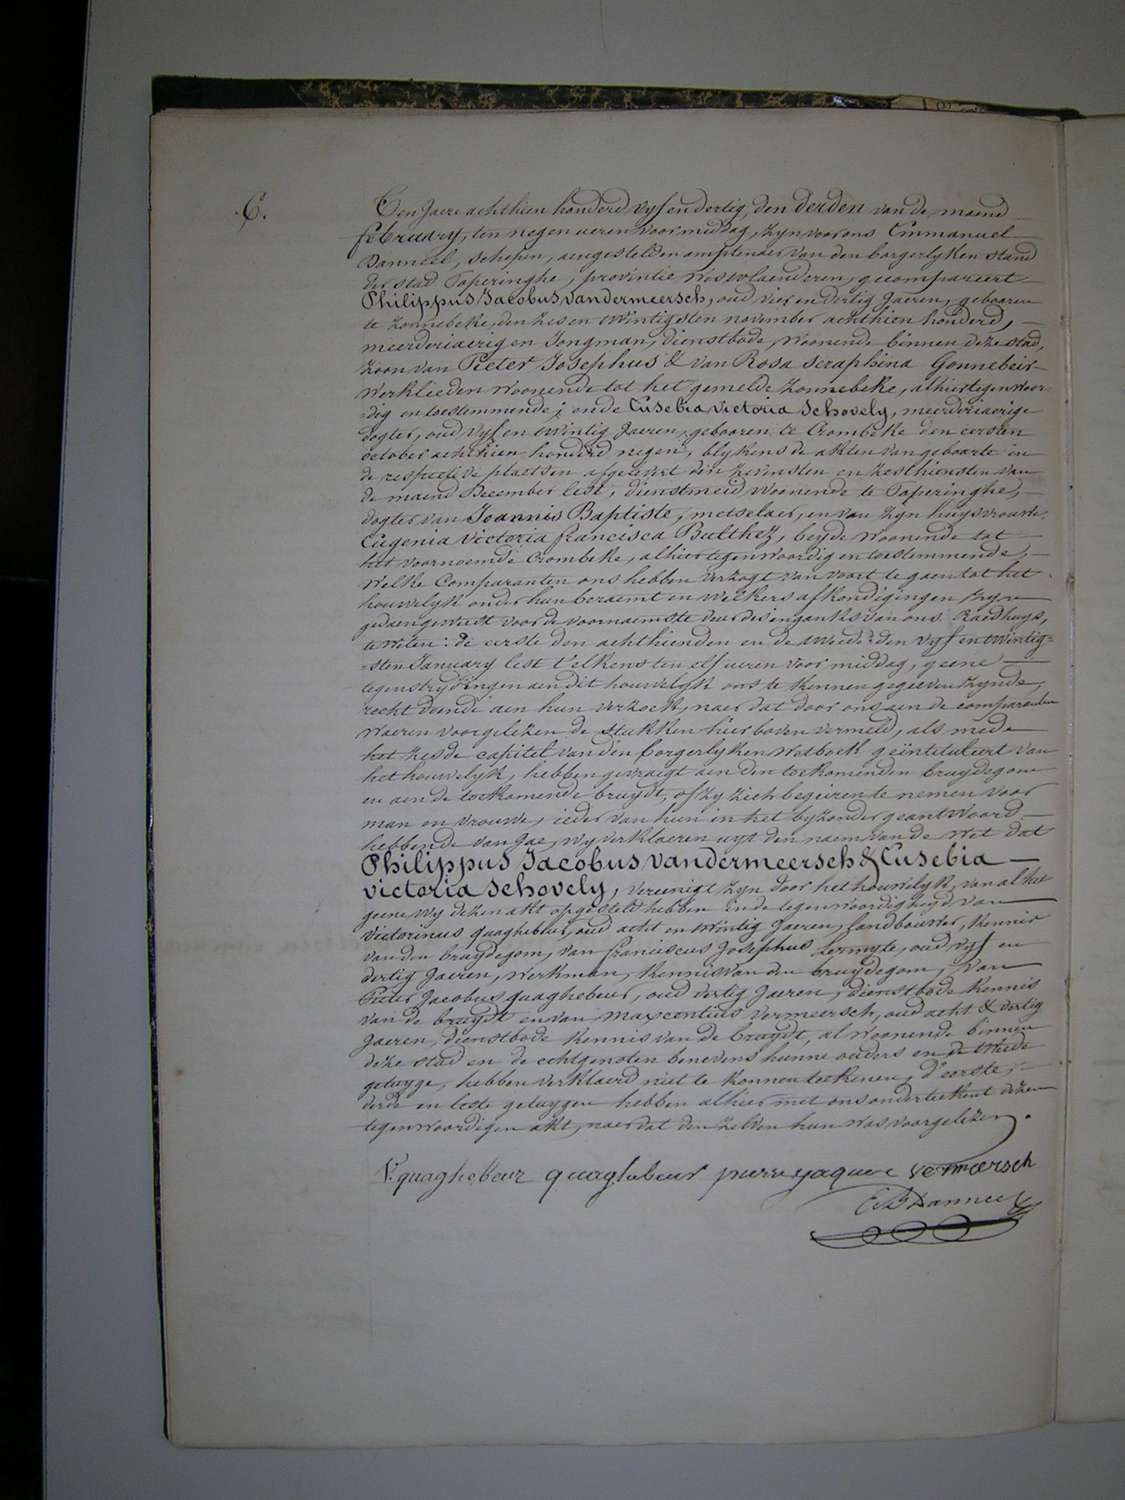 6.
Den Jaere achthien honderd vyf en dertig, den derden van de maend
february, ten negen ueren voormiddag, zyn voor ons Emmanuel
Danneel, schepen, aengestelden amptenaer van den borgerlyken stand
der stad Poperinghe, provintie Westvlaenderen, gecompareert
Philippus Jacobus Vandermeersch, oud vier en dertig Jaeren, gebooren
te Zonnebeke, den zes en twintigsten november achthien honderd,
meerderjaerig en Jongman, dienstbode, woonende binnen deze stad,
zoon van Pieter Josephus & van Rosa Seraphina Gonnebeir
werklieden woonende tot het gemelde Zonnebeke, alhier tegenwoor-
-dig en toestemmende; ende Eusebia Victoria Schovely, meerderjaerige
dogter, oud vyf en twintig Jaeren, gebooren te Crombeke den eersten
october achthien honderd negen, blykens de akten van geboorte in
de respective plaetsen afgelevert den zevensten en zesthiensten van
de maend December lest, dienstmeid woonende te Poperinghe,
dogter van Joannis Baptiste, metselaer, en van zyn huysvrouw
Eugenia Victoria francisca Bulthez, beyde woonende tot
het voornoemde Crombeke, alhier tegenwoordig en toestemmende,
Welke Comparanten ons hebben verzogt van voort te gaen tot het
houwelyk onder hun beraemt en welkers afkondigingen zyn
gedaen geweest voor de voornaemste deur des ingangs van ons Raedhuys,
te weten: de eerste den achthienden en de tweede den vyf en twintig-
-sten January lest t'elkens ten elf ueren voormiddag, geene
tegenstrydingen aen dit houwelyk ons te kennen gegeeven zynde,
recht doende aen hun verzoek, naer dat door ons aen de comparanten
waeren voorgelezen de stukken hier boven vermeld, als mede
het zesde capitel van den borgerlyken Wetboek geïntituleert van
het houwelyk, hebben gevraegt aen den toekomenden bruydegom
en aen de toekomende bruydt, of zy zich begeiren te nemen voor
man en vrouwe, ieder van hun in het byzonder geantwoord
hebbende van Jae, wy verklaeren uyt den naem van de Wet dat
Philippus Jacobus Vandermeersch & Eusebia
Victoria Schovely, vereenigt zyn door het houwelyk, van al het
geene, wy dezen akt opgesteld hebben in de tegenwoordigheyd van
Victorinus quaghebeur, oud acht en twintig Jaeren, landbouwer, kennis
van den bruydegom, van franciscus Josephus Lermyte, oud vyf en
dertig Jaeren, werkman, kennis van den bruydegom, van
Pieter Jacobus quaghebeur, oud dertig Jaeren, dienstbode kennis
van de bruydt en van Maxcentius Vermeersch, oud acht & dertig
Jaeren, dienstbode kennis van de bruydt, al woonende binnen
deze stad en de echtgenoten benevens hunne ouders en de twede
getuyge, hebben verklaerd niet te konnen teekenen, d'eerste,
derde en leste getuygen hebben alhier met ons onderteekent dezen
tegenwoordigen akt, naer dat den zelven hun was voorgelezen.
V. quaghebeur quaghebeur pierre jaque vermeersch
E. B. Danneel